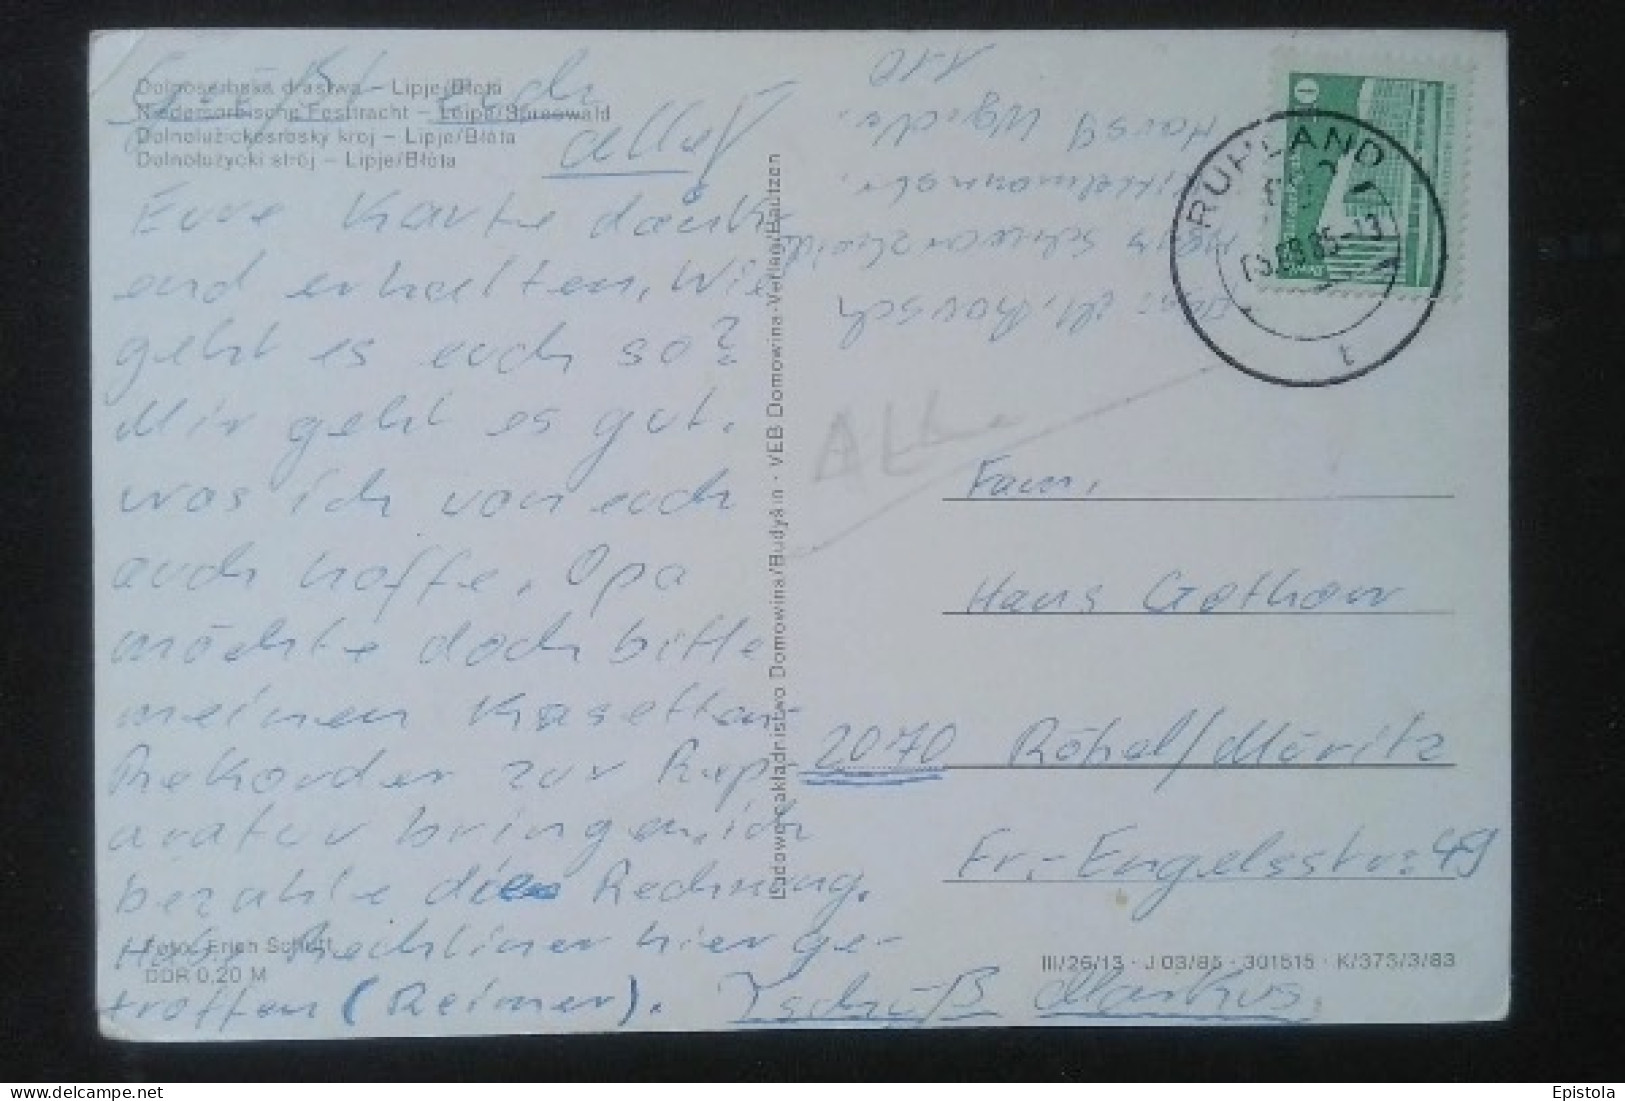 Dolnoserbska drastwa – Lipje/Błota
Niedersorbische Festtracht – Leipe/Spreewald
Dolnolužickosrbský kroj – Lipje/Błota
Dolnołużycki strój – Lipje/Błota
Grüßt euch
alle!
Eure Karte dank-
end erhalten, wie
geht es euch so?
Mir geht es gut.
was ich von euch
auch hoffe. Opa
möchte doch bitte
meinen Kasetten-
Rekorder zur Rep-
aratur bringen, ich
bezahle die Rechnung.
Habe Rechliner hier ge-
troffen (Reimer). Tschüß Markus.
Foto: Erich Schutt
DDR 0,20 M
Ludowe nakładnistwo Domowina/Budyšin · VEB Domowina-Verlag Bautzen
Schwarzheide
1-10
RUHLAND
.08.85-13
t
10
Fam.
Hans Gothow
2070 Röbel/Müritz
Fr.-Engelsstr: 49
III/26/13 · J 03/85 · 301515 · K/373/3/83
Epistola